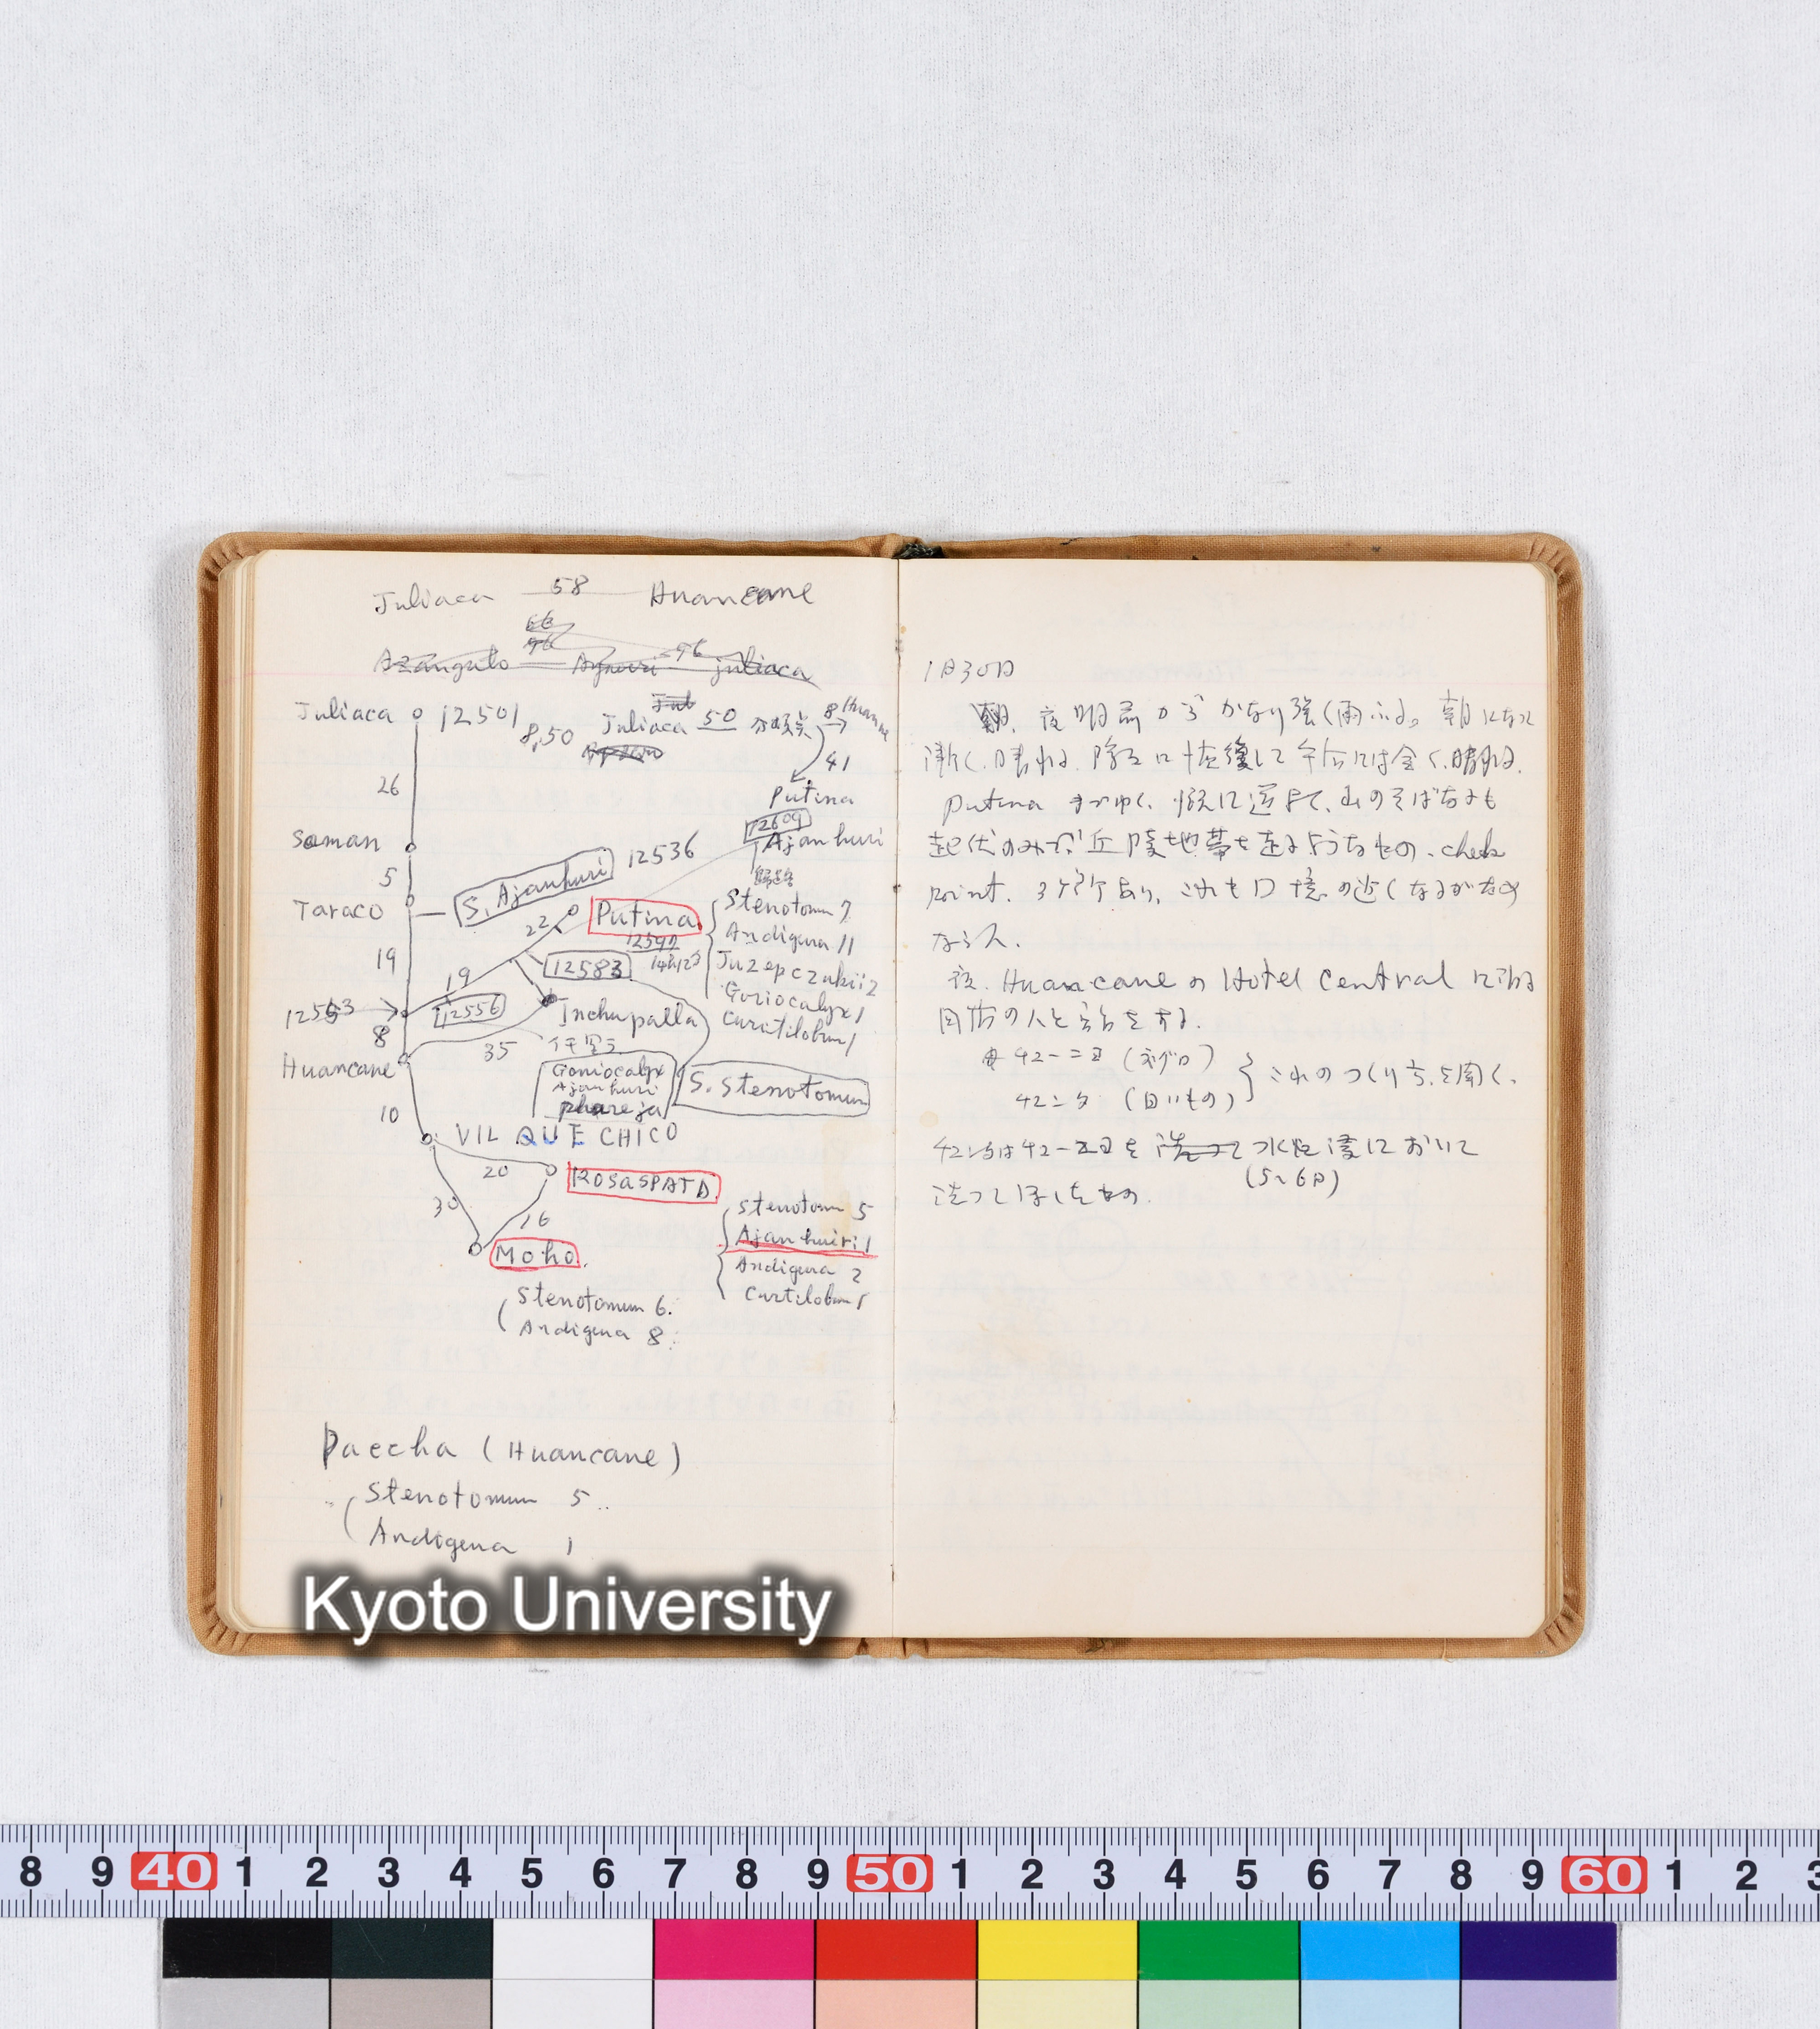 Juliaca 58 Huancane
Azangulo 96 Juliaca
Juliaca 12501
8,50
Juliaca 50 分岐点 8 Huancane
41
Putina
26
12609
Ajanhuri
Saman
12536
5
S. Ajanhuri
Taraco
22
Putina
12597
14h123
Stenotomum 7
Andigena 11
Juzepczukii 2
Goniocalyx 1
Curtilobum 1
19
19
12583
12563
12556
Inchupalla
8
35
Huancane
Goniocalyx
Ajanhuri
phureja
S. Stenotomum
10
VILQUECHICO
20
ROSASPATA
30
16
Moho
Stenotomum 5
Ajanhuiri 1
Andigena 2
Curtilobum 1
Stenotomum 6.
Andigena 8.
Paccha (Huancane)
Stenotomum 5
Andigena 1
Kyoto University
1月30日
朝、夜明前からかなり強く雨ふる。朝になって
漸く晴れる。 して午后には全く晴れる。
Putina までゆく。 山のそばちも
起伏のみで丘陵地帯を走るようなもの。check
point. 3ヶ所あり、これも国境の近くなるがため
ならん。
夜、Huancaneの Hotel Central に泊る
同宿の人と会話をする。
(ネグロ)
(白いもの)
これのつくり方を聞く。
水にておいて
(5~6日)
洗ってほしたもの。
8 9 40 1 2 3 4 5 6 7 8 9 50 1 2 3 4 5 6 7 8 9 60 1 2 3